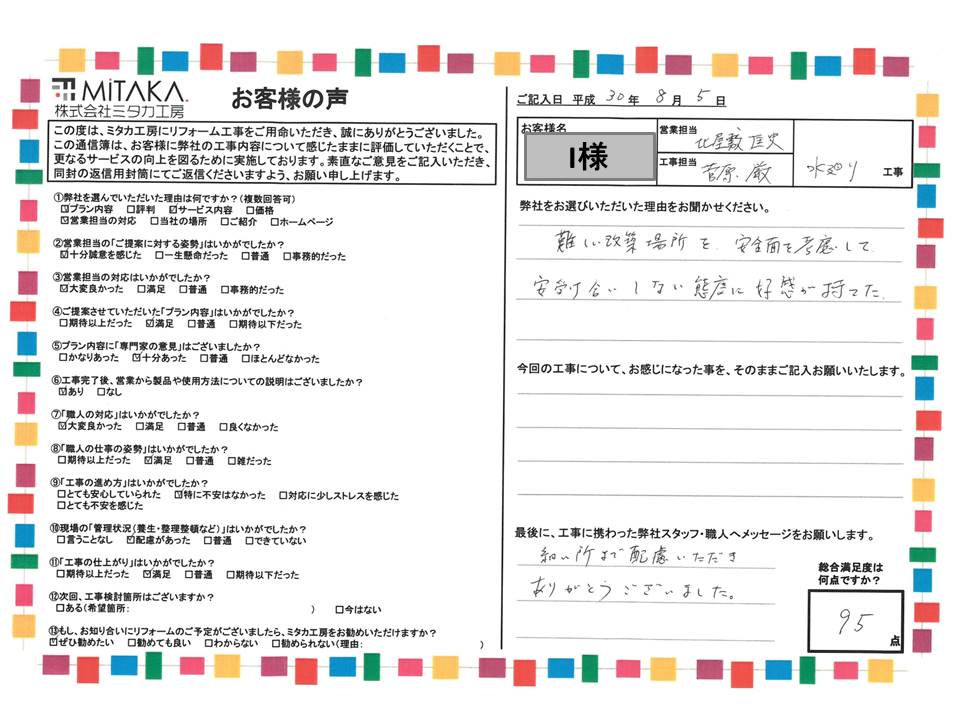 MiTAKA
株式会社ミタカ工房
お客様の声
この度は、ミタカ工房にリフォーム工事をご用命いただき、誠にありがとうございました。
この通信簿は、お客様に弊社の工事内容について感じたままに評価していただくことで、
更なるサービスの向上を図るために実施しております。素直なご意見をご記入いただき、
同封の返信用封筒にてご返信くださいますよう、お願い申し上げます。
①弊社を選んでいただいた理由は何ですか?(複数回答可)
☑プラン内容 □評判 ☑サービス内容 □価格
☑営業担当の対応 □当社の場所 □ご紹介 □ホームページ
②営業担当の「ご提案に対する姿勢」はいかがでしたか?
☑十分誠意を感じた □一生懸命だった □普通 □事務的だった
③営業担当の対応はいかがでしたか?
☑大変良かった □満足 □普通 □事務的だった
④ご提案させていただいた「プラン内容」はいかがでしたか?
□期待以上だった ☑満足 □普通 □期待以下だった
⑤プラン内容に「専門家の意見」はございましたか?
□かなりあった ☑十分あった □普通 □ほとんどなかった
⑥工事完了後、営業から製品や使用方法についての説明はございましたか?
☑あり □なし
⑦「職人の対応」はいかがでしたか?
☑大変良かった □満足 □普通 □良くなかった
⑧「職人の仕事の姿勢」はいかがでしたか?
□期待以上だった ☑満足 □普通 □雑だった
⑨「工事の進め方」はいかがでしたか?
□とても安心していられた ☑特に不安はなかった □対応に少しストレスを感じた
□とても不安を感じた
⑩現場の「管理状況(養生・整理整頓など)」はいかがでしたか?
□言うことなし ☑配慮があった □普通 □できていない
⑪「工事の仕上がり」はいかがでしたか?
□期待以上だった ☑満足 □普通 □期待以下だった
⑫次回、工事検討箇所はございますか?
□ある(希望箇所: ) □今はない
⑬もし、お知り合いにリフォームのご予定がございましたら、ミタカ工房をお勧めいただけますか?
☑ぜひ勧めたい □勧めても良い □わからない □勧められない(理由: )
ご記入日 平成 30 年 8 月 5 日
お客様名
I様
営業担当 比屋敷 匡史
工事担当 菅原 厳
水廻り 工事
弊社をお選びいただいた理由をお聞かせください。
難しい改築場所を、安全面を考慮して
安請け合いしない態度に好感が持てた。
今回の工事について、お感じになった事を、そのままご記入お願いいたします。
最後に、工事に携わった弊社スタッフ・職人へメッセージをお願いします。
細い所まで配慮いただき
ありがとうございました。
総合満足度は
何点ですか?
95 点